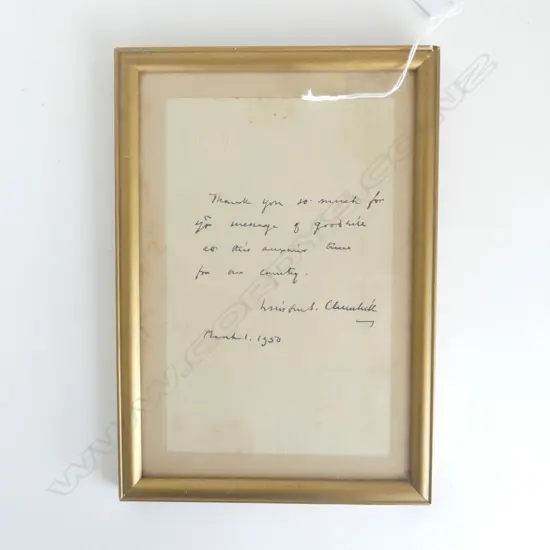 Thank you so much for
yr message of goodwill
at this anxious time
for our country.
Winston S. Churchill
March 1. 1950
WWW.CORDY.CO.NZ